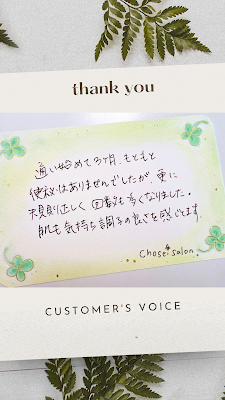 thank you
通い始めて3ヶ月、もともと
便秘はありませんでしたが、更に
規則正しく 回数も多くなりました。
肌も気持ち調子の良さを感じてます。
Chase. salon
CUSTOMER'S VOICE